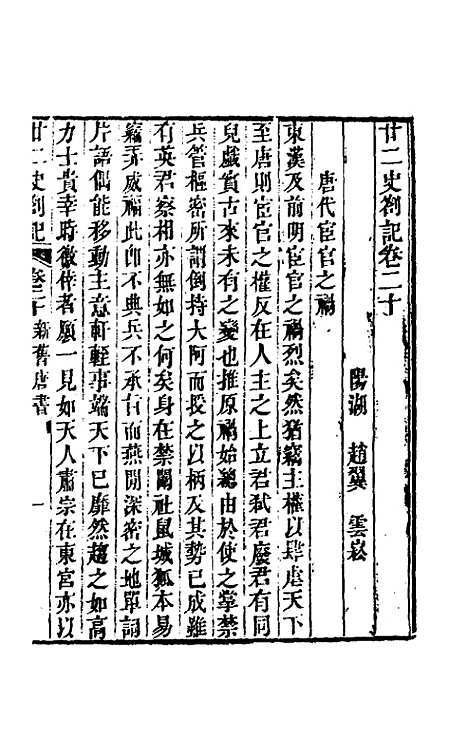 廿二史劄記卷二十
陽湖　趙翼　雲崧
唐代宦官之禍
東漢及前明宦官之禍烈矣然猶竊主權以肆虐天下
至唐則宦官之權反在人主之上立君弒君廢君有同
兒戲實古來未有之變也推原禍始總由於使之掌禁
兵管樞密所謂倒持大阿而授之以柄及其勢已成雖
有英君察相亦無如之何矣身在禁闈社鼠城狐本易
竊弄威福此即不典兵不承旨而燕閒深密之地單詞
片語偶能移動主意軒輊事端天下已靡然趨之如高
力士貴幸時徼倖者願一見如天人肅宗在東宮亦以
廿二史劄記　卷二十　新舊唐書　一